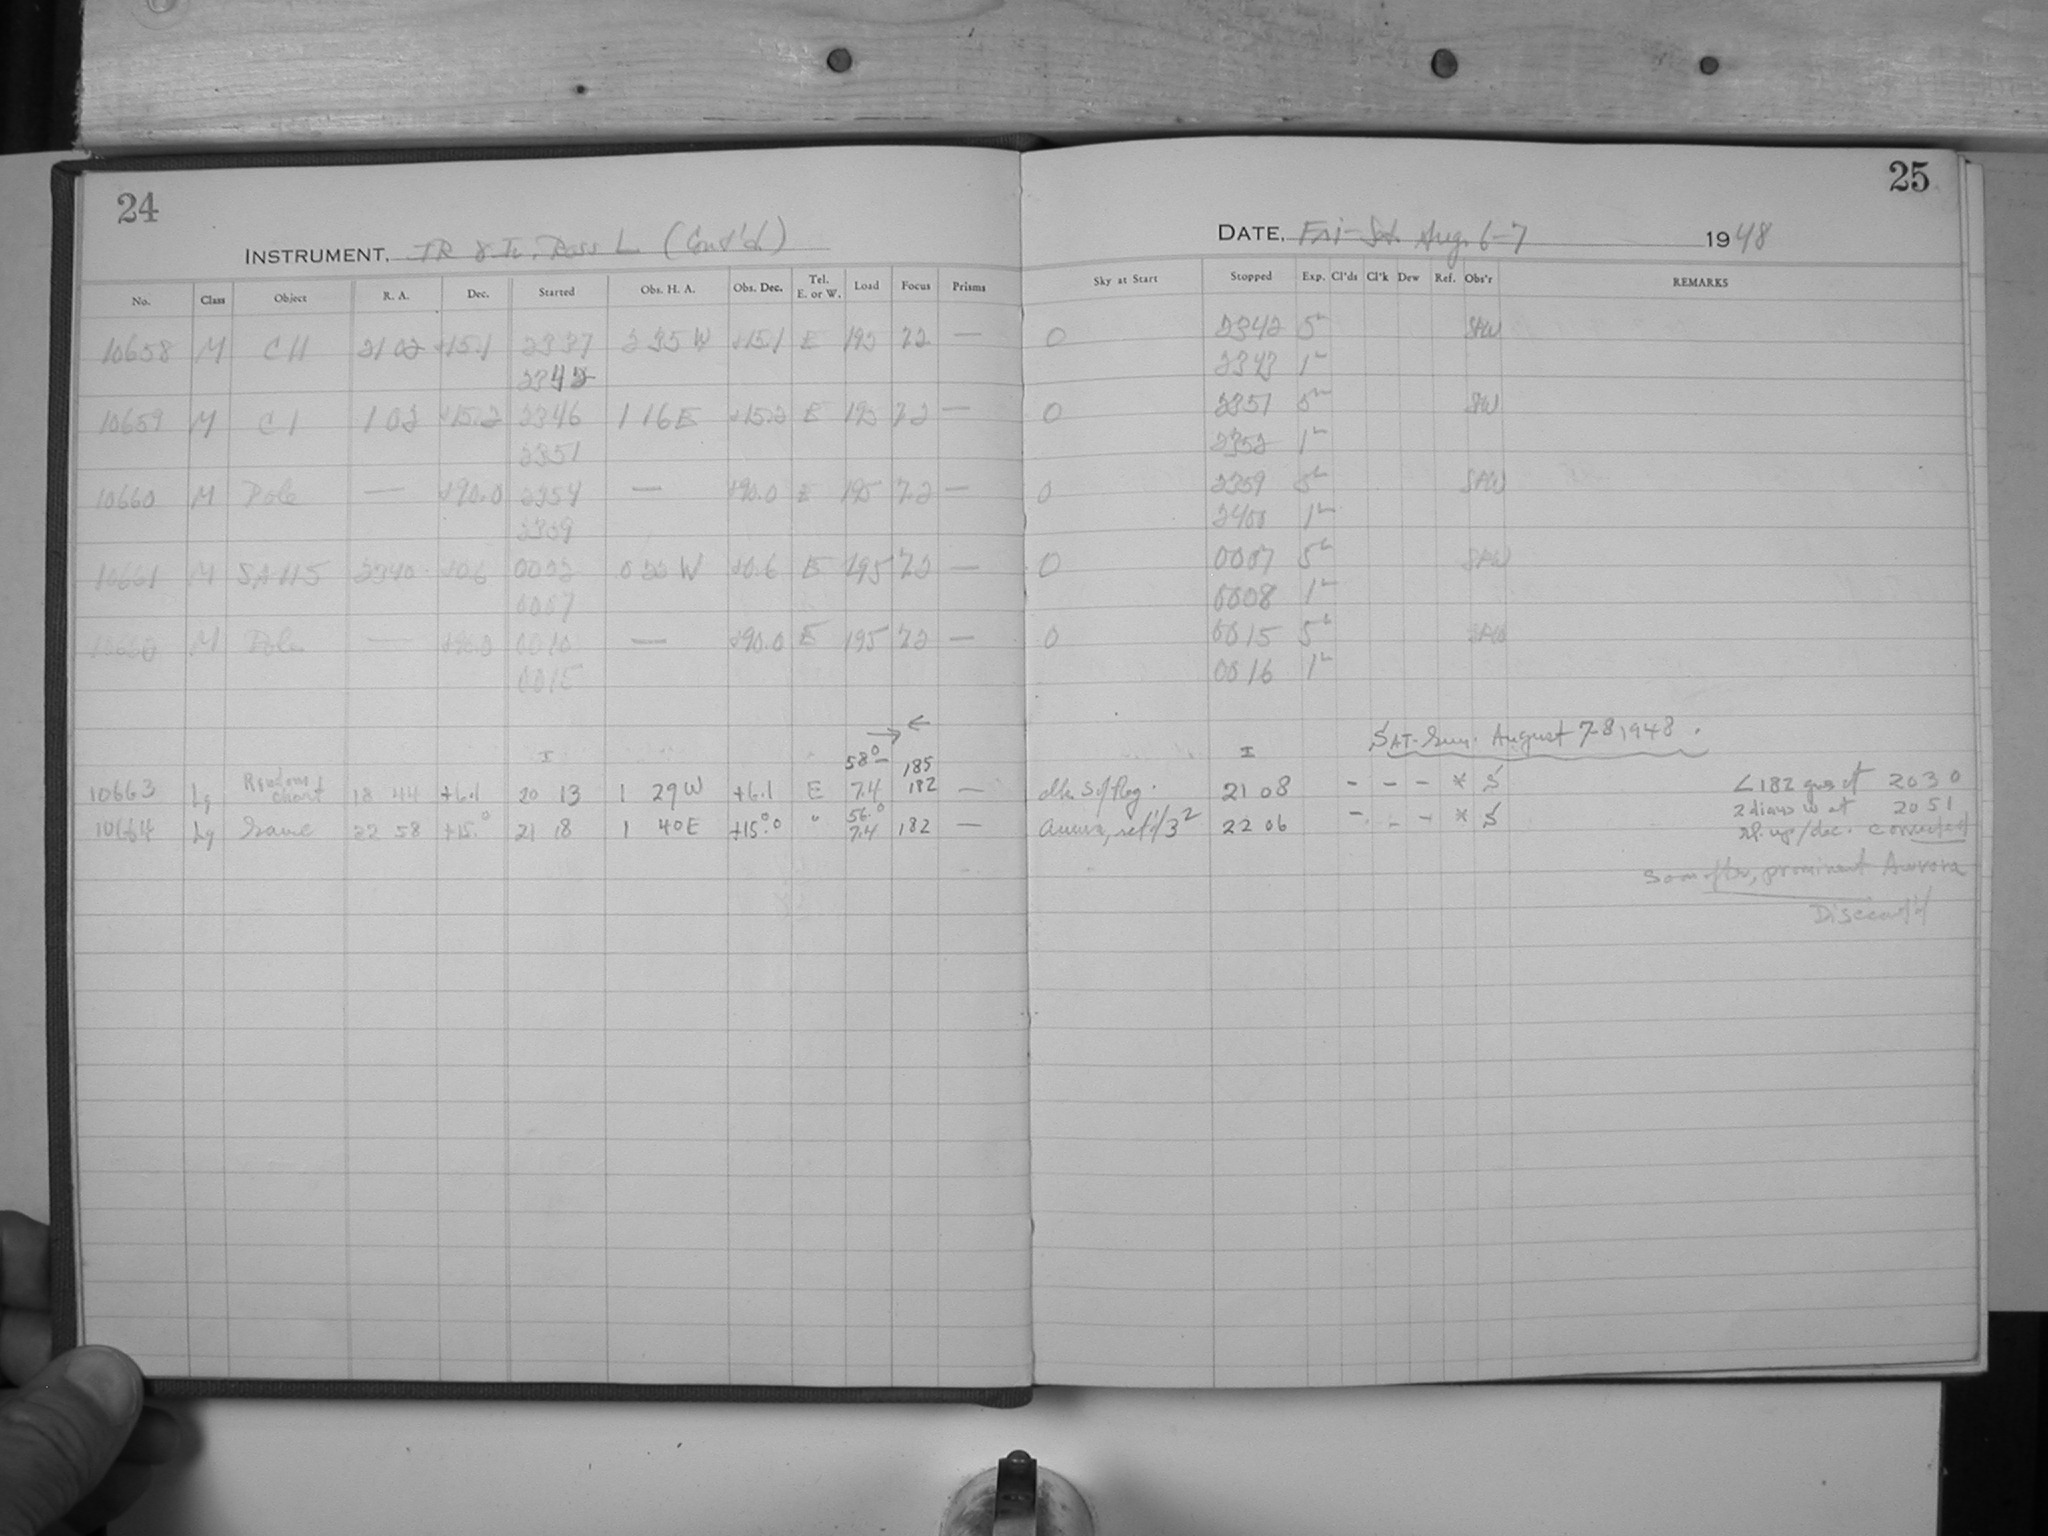 24
INSTRUMENT. IR 8 In. Ross L (Cont'd)
No. Class Object R. A. Dec. Started Obs. H. A. Obs. Dec. Tel. E. or W. Load Focus Prisms
10658 M C11 21 02 +15.1 2337 2 35 W +15.1 E 195 72 —
2342
10659 M C1 1 02 +15.2 2346 1 16 E +15.2 E 195 72 —
2351
10660 M Pole — +90.0 2354 — +90.0 E 195 72 —
2359
10661 M SA 115 2340 +0.6 0002 0 22 W +0.6 E 195 72 —
0007
M Pole — +90.0 0010 — +90.0 E 195 72 —
0015
→ ←
I 58° 185
10663 Lg chart 18 44 +6.1 20 13 1 29 W +6.1 E 7.4 182 —
56.°
10664 Lg Same 22 58 +15.° 21 18 1 40 E +15.°0 " 7.4 182 —
25
DATE. Fri-Sat. Aug. 6-7 1948
Sky at Start Stopped Exp. Cl'ds Cl'k Dew Ref. Obs'r REMARKS
0 2342 5 SAW
2343 1
0 2351 5 SAW
2352 1
0 2359 5 SAW
2400 1
0 0007 5 SAW
0008 1
0 0015 5 SAW
0016 1
SAT-Sun. August 7-8, 1948.
I
21 08 - - - * S <182 at 2030
Aurora, 22 06 - - - * S 2 at 2051
corrected
prominent Aurora
Discard'd